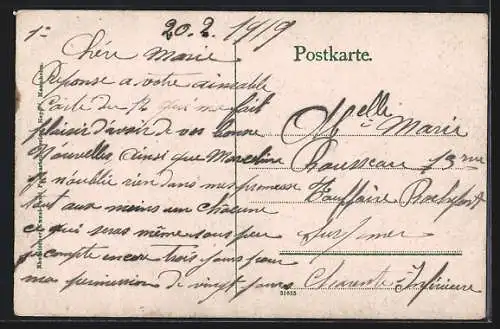 1=
20.2.1919
Chère Marie
Postkarte.
Réponse a votre aimable
Carte du 12 qui me fait
plaisir d'avoir de vos bonne
Nouvelles, ainsi que Marceline
je n'oublié rien dans mes promesse
tout aux moins un chacune
ce qui seras même sous peu
je compte encore trois jours pour
ma permission de vingt jours
Melle Marie
Rousseau 13 rue
Touffaire Rochefort
sur mer
Charente Inférieure
31633